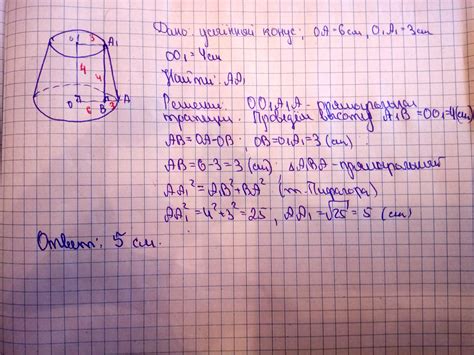 Дано: усечённый конус; OA=6см, O₁A₁=3см
OO₁=4см
Найти: AA₁
Решение. OO₁A₁A - прямоугольная
трапеция. Проведём высоту A₁B=OO₁=4(см)
AB=OA-OB; OB=O₁A₁=3 (см)
AB=6-3=3 (см); △A₁BA - прямоугольный
AA₁²=A₁B²+BA² (т. Пифагора)
AA₁²=4²+3²=25, AA₁=√25=5 (см)
Ответ: 5 см.
O₁ 3 A₁
4 4
O B 3 A
6